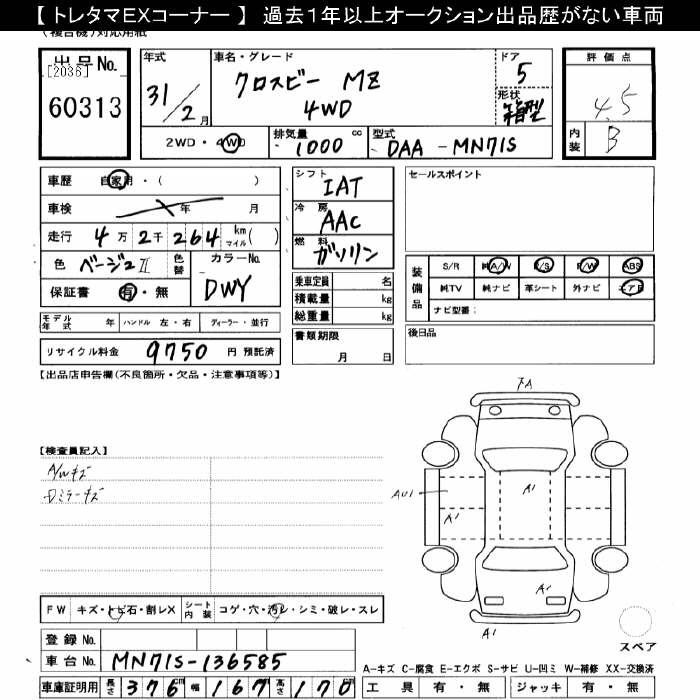 【 トレタマEXコーナー 】 過去１年以上オークション出品歴がない車両
(複合機) 対応用紙
出品No.
[2036]
60313
年式
31/2月
車名・グレード
クロスビー MZ
4WD
ドア
5
形状
箱型
評価点
4.5
内装
B
2WD・4WD
排気量 1000 cc
型式 DAA - MN71S
車歴 自家用・( )
車検 年 月
走行 4万2千264 km マイル( )
色 ベージュII 色替
カラーNo.
DWY
保証書 有・無
シフト
IAT
冷房
AAC
燃料
ガソリン
乗車定員 名
積載量 kg
総重量 kg
セールスポイント
装備品
S/R 純A/W P/S P/W ABS
純TV 純ナビ 革シート 外ナビ エアB
ナビ型番:
モデル年式 年 ハンドル 左・右 ディーラー・並行
書類期限
月 日
後日品
リサイクル料金 9750 円 預託済
【出品店申告欄(不良箇所・欠品・注意事項等)】
FA
【検査員記入】
A/Wキズ
Dミラーキズ
AU1
A1
A1
A1
A1
FW キズ・トビ石・割レX
シート内装 コゲ・穴・汚レ・シミ・破レ・スレ
登録No.
車台No. MN71S-136585
スペア
A-キズ C-腐食 E-エクボ S-サビ U-凹ミ W-補修 XX-交換済
車庫証明用 長さ 376 cm 幅 167 高さ 170
工具 有・無 ジャッキ 有・無